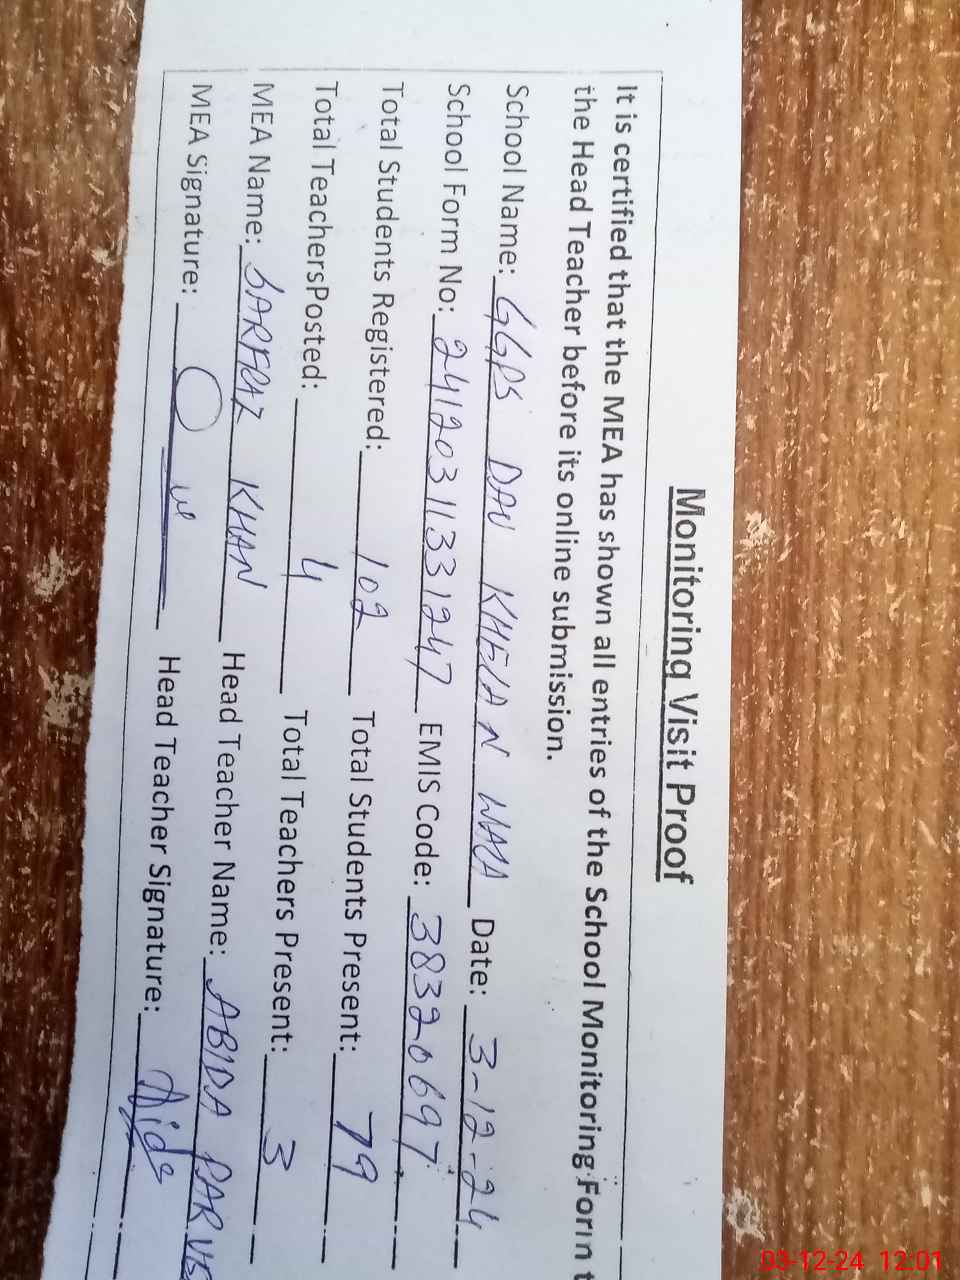 Monitoring Visit Proof
It is certified that the MEA has shown all entries of the School Monitoring Form t
the Head Teacher before its online submission.
School Name: GGPS DAU KHELAN WALA Date: 3-12-24
School Form No: 24120311331247 EMIS Code: 38320697
Total Students Registered: 102 Total Students Present: 79
Total TeachersPosted: 4 Total Teachers Present: 3
MEA Name: SARFRAZ KHAN Head Teacher Name: ABIDA PARVE
MEA Signature: Head Teacher Signature:
03-12-24 12:01